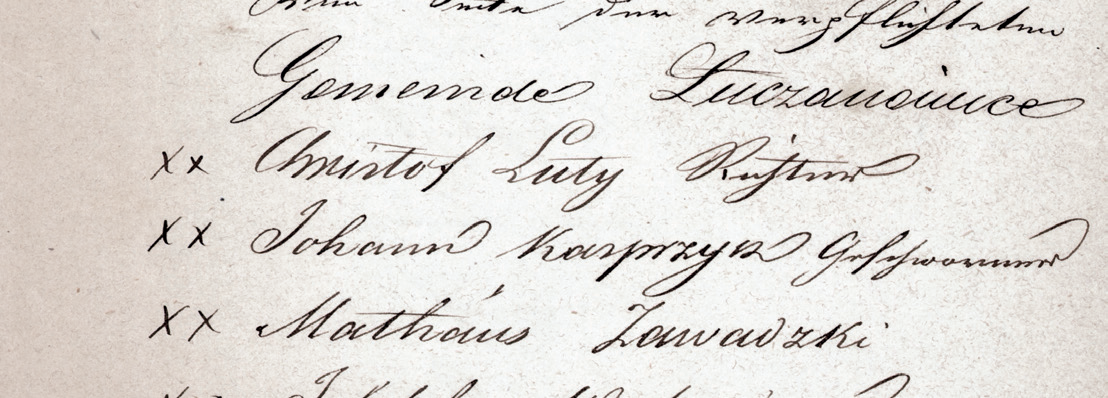 Seite der verpflichteten
Gemeinde Luczanowice
xx Christof Luty Richter
xx Johann Kasprzyk Geschworner
xx Mathäus Zawadzki